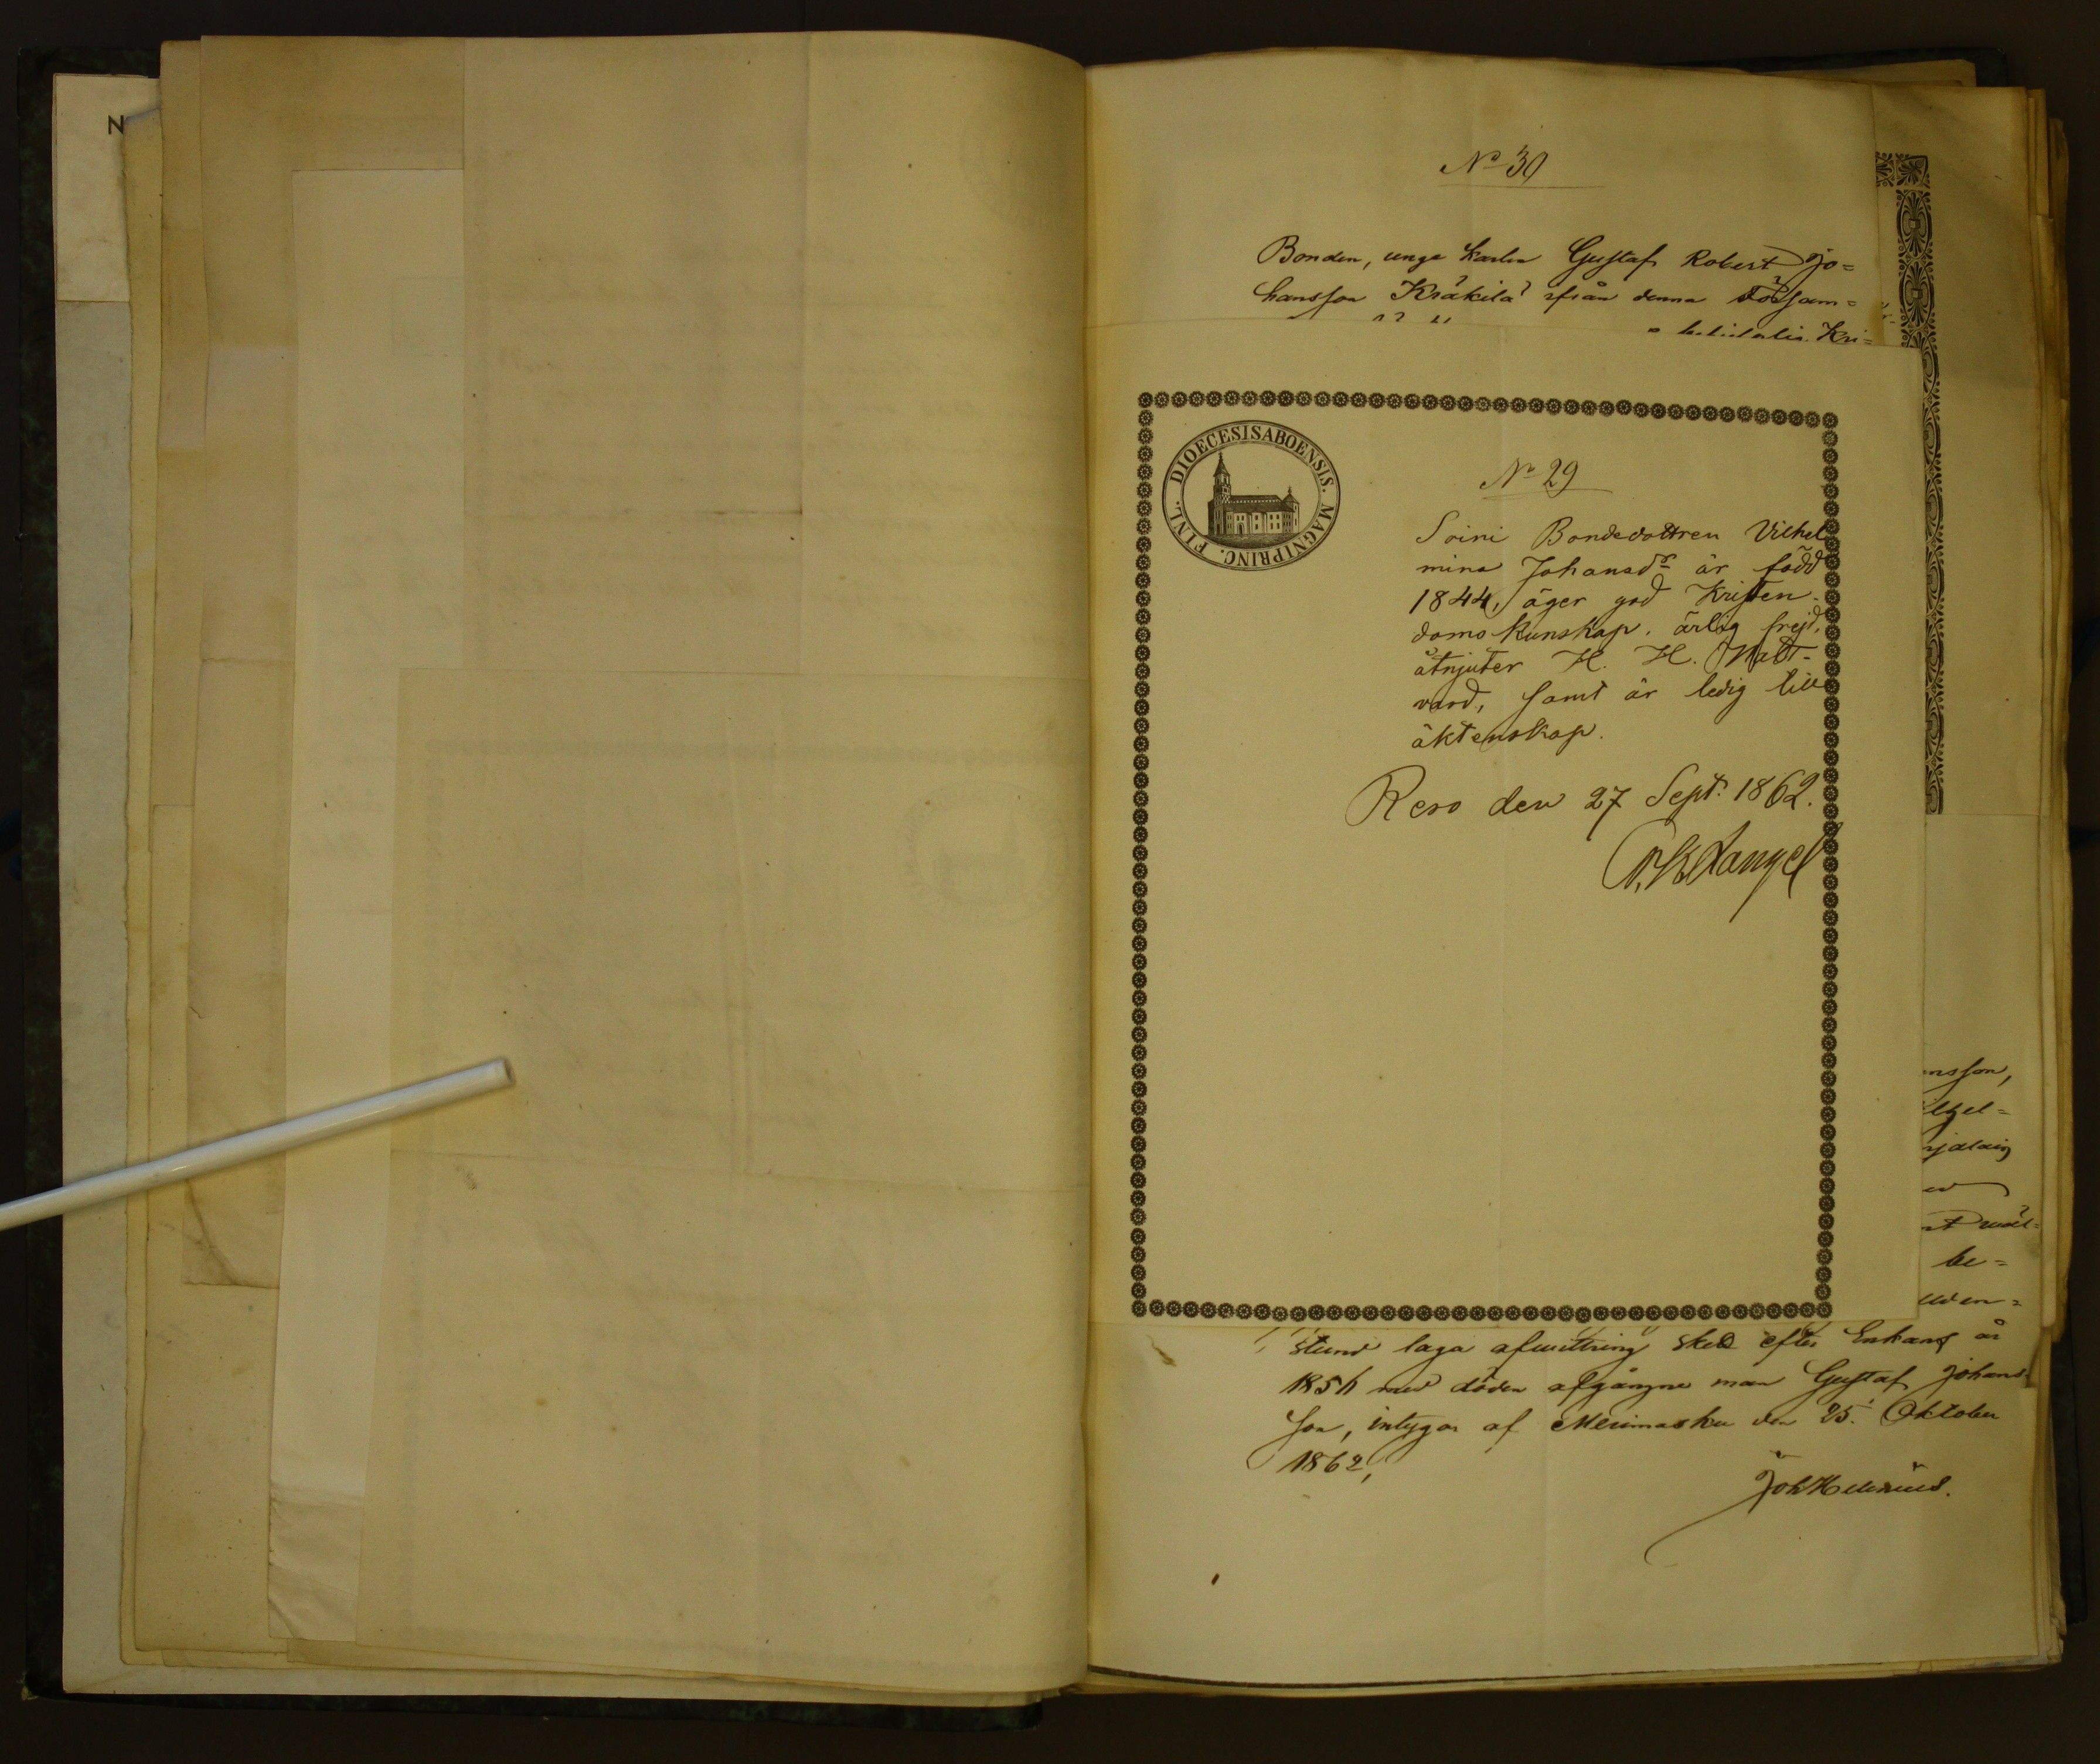 N
No 30
Bonden, unge karlen Gustaf Robert Jo=
hansson Kräkilä ifrån denna Försam=
Kri=
DIOECESIS ABOENSIS. MAGNI PRINC. FINL.
No 29
Soini Bondedottren Vilhel
mina Johansdr är född
1844, äger god Kristen-
doms kunskap, ärlig frejd,
åtnjuter H. H. Natt-
vard, samt är ledig till
äktenskap.
Reso den 27 Sept. 1862.
nsson,
be=
stund laga afwittring sked efter Enkans år
185 med döden afgångne man Gustaf Johans=
son, intygar af Merimasku den 25. Oktober
1862,
Joh Helenius.